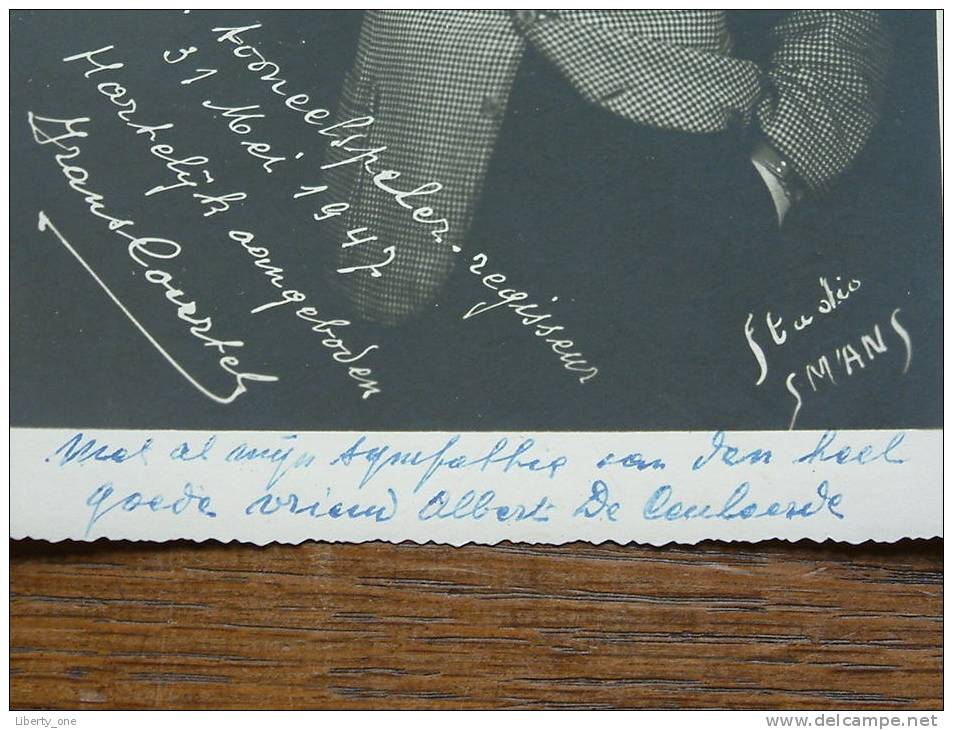 tooneelspeler-regisseur
31 Mei 1947
Hartelijk aangeboden
Frans Coertel
Studio
SM'ANS
Met al mijn sympathie van den heel
goede vriend Albert De
Liberty_one
delcampe.net